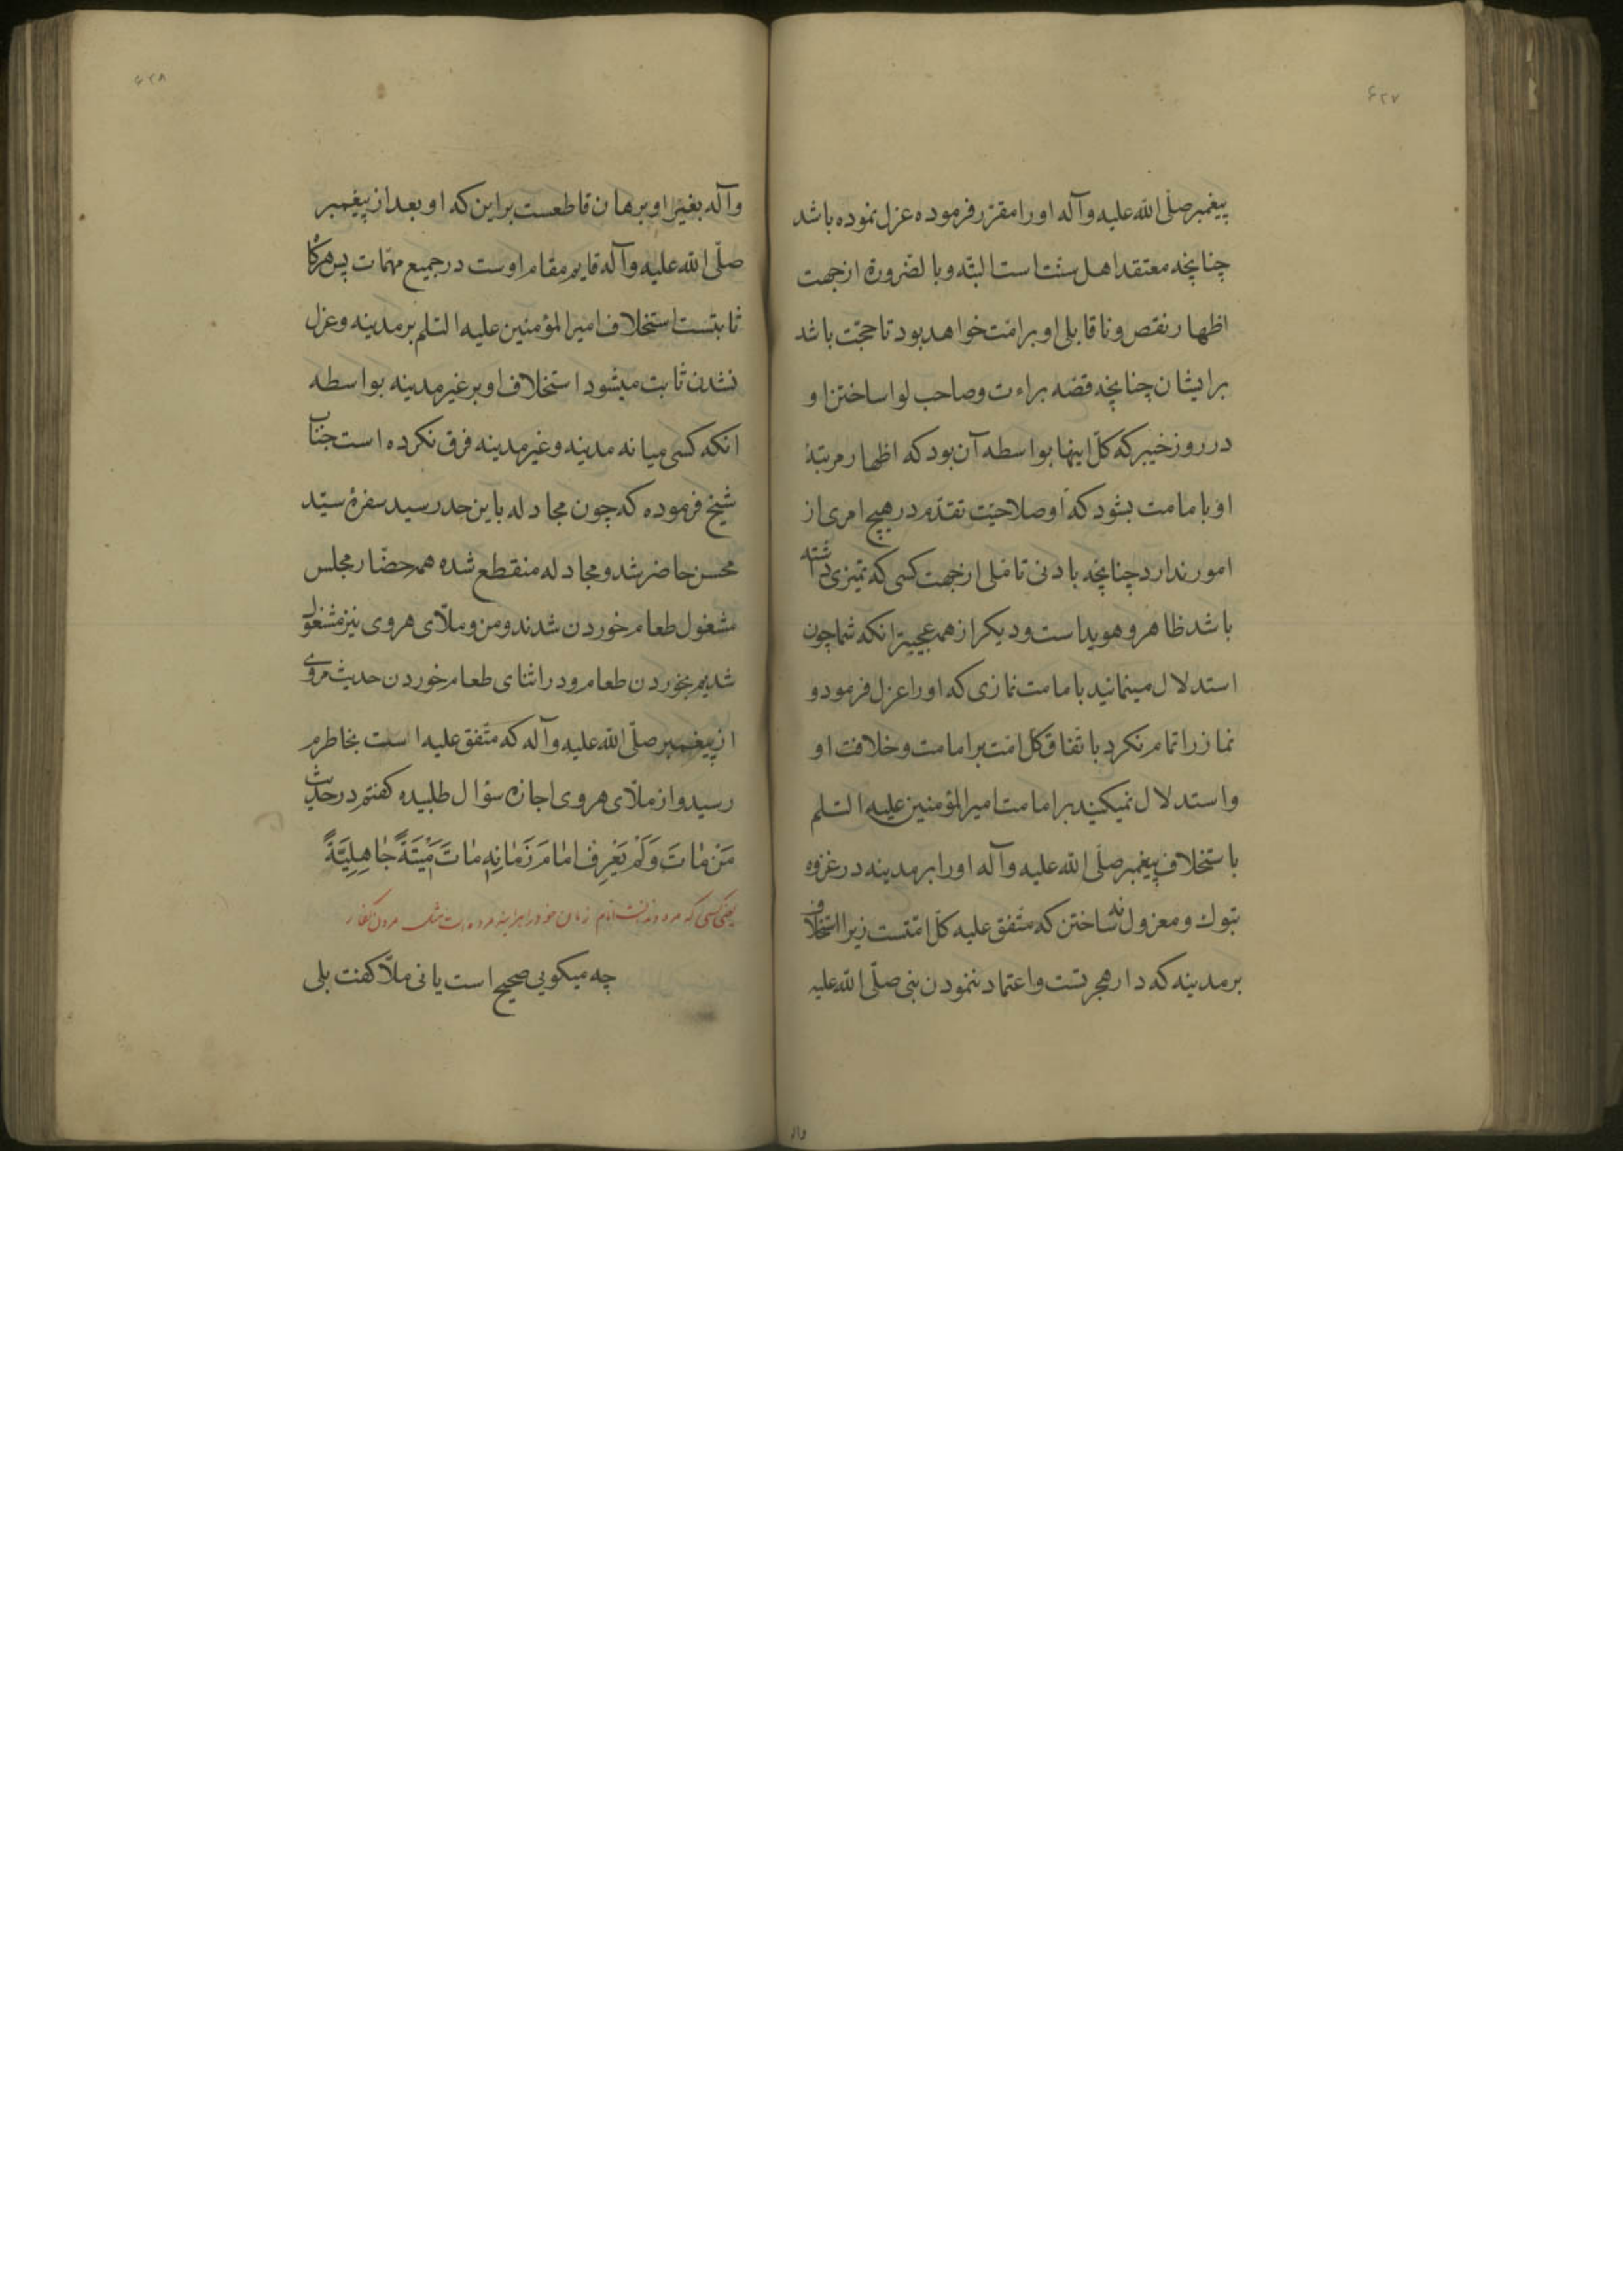 ۶۲۷
پیغمبر صلّی الله علیه وآله او را مقرّر فرموده عزل نموده باشد
چنانچه معتقد اهل سنّت است البتّه وبالضّرورة ازجهت
اظهار نقص وناقابلی او بر امّت خواهد بود تا حجّت باشد
برایشان چنانچه قضه براءت وصاحب لوا ساختن او
در روز خیبر که کلّ اینها بواسطه آن بود که اظهار مرتبهٔ
او با مامت بشود که او صلاحیّت تقدّم در هیچ امری از
امور ندارد چنانچه بادنی تامّلی ازجهت کسی که تمیزی داشته
باشد ظاهر وهویداست ودیکر از همه عجیبتر انکه شما چون
استدلال مینمائید بامامت نمازی که او را عزل فرمود و
نماز را تمام نکرد باتّفاق کل امّت بر امامت وخلافت او
واستدلال نمیکنید بر امامت امیرالمؤمنین علیه السّلم
باستخلاف پیغمبر صلّی الله علیه وآله او را بر مدینه در غزوه
تبوك ومعزول نه ساختن که متّفق علیه کلّ امّتست زیرا استخلاف
بر مدینه که دار هجرتست واعتماد ننمودن نبی صلّی الله علیه
واله
۶۲۸
وآله بغیر او برهان قاطعست براین که او بعد از پیغمبر
صلّی الله علیه وآله قایم مقام اوست در جمیع مهمّات پس هرکا
ثابتست استخلاف امیرالمؤمنین علیه السّلم بر مدینه وعزل
نشدن ثابت میشود استخلاف او بر غیر مدینه بواسطه
انکه کسی میانه مدینه وغیر مدینه فرق نکرده است جناب
شیخ فرموده که چون مجادله باین حد رسید سفرهٔ سیّد
محسن حاضر شد ومجادله منقطع شده همه حضّار مجلس
مشغول طعام خوردن شدند ومن وملّای هروی نیز مشغول
شدیم بخوردن طعام ودر اثنای طعام خوردن حدیث مروی
از پیغمبر صلّی الله علیه وآله که متّفق علیه است بخاطرم
رسید واز ملّای هروی اجازه سؤال طلبیده کفتم در حدیث
مَنْ مٰاتَ وَلَمْ یَعْرِفْ اِمٰامَ زَمٰانِهِ مٰاتَ مِیْتَةً جٰاهِلِیَّةً
یعنی کسی که مرد وندانست امام زمان خود را هراینه مرده است مثل مردن کفار
چه میکویی صحیح است یا نی ملّا کفت بلی